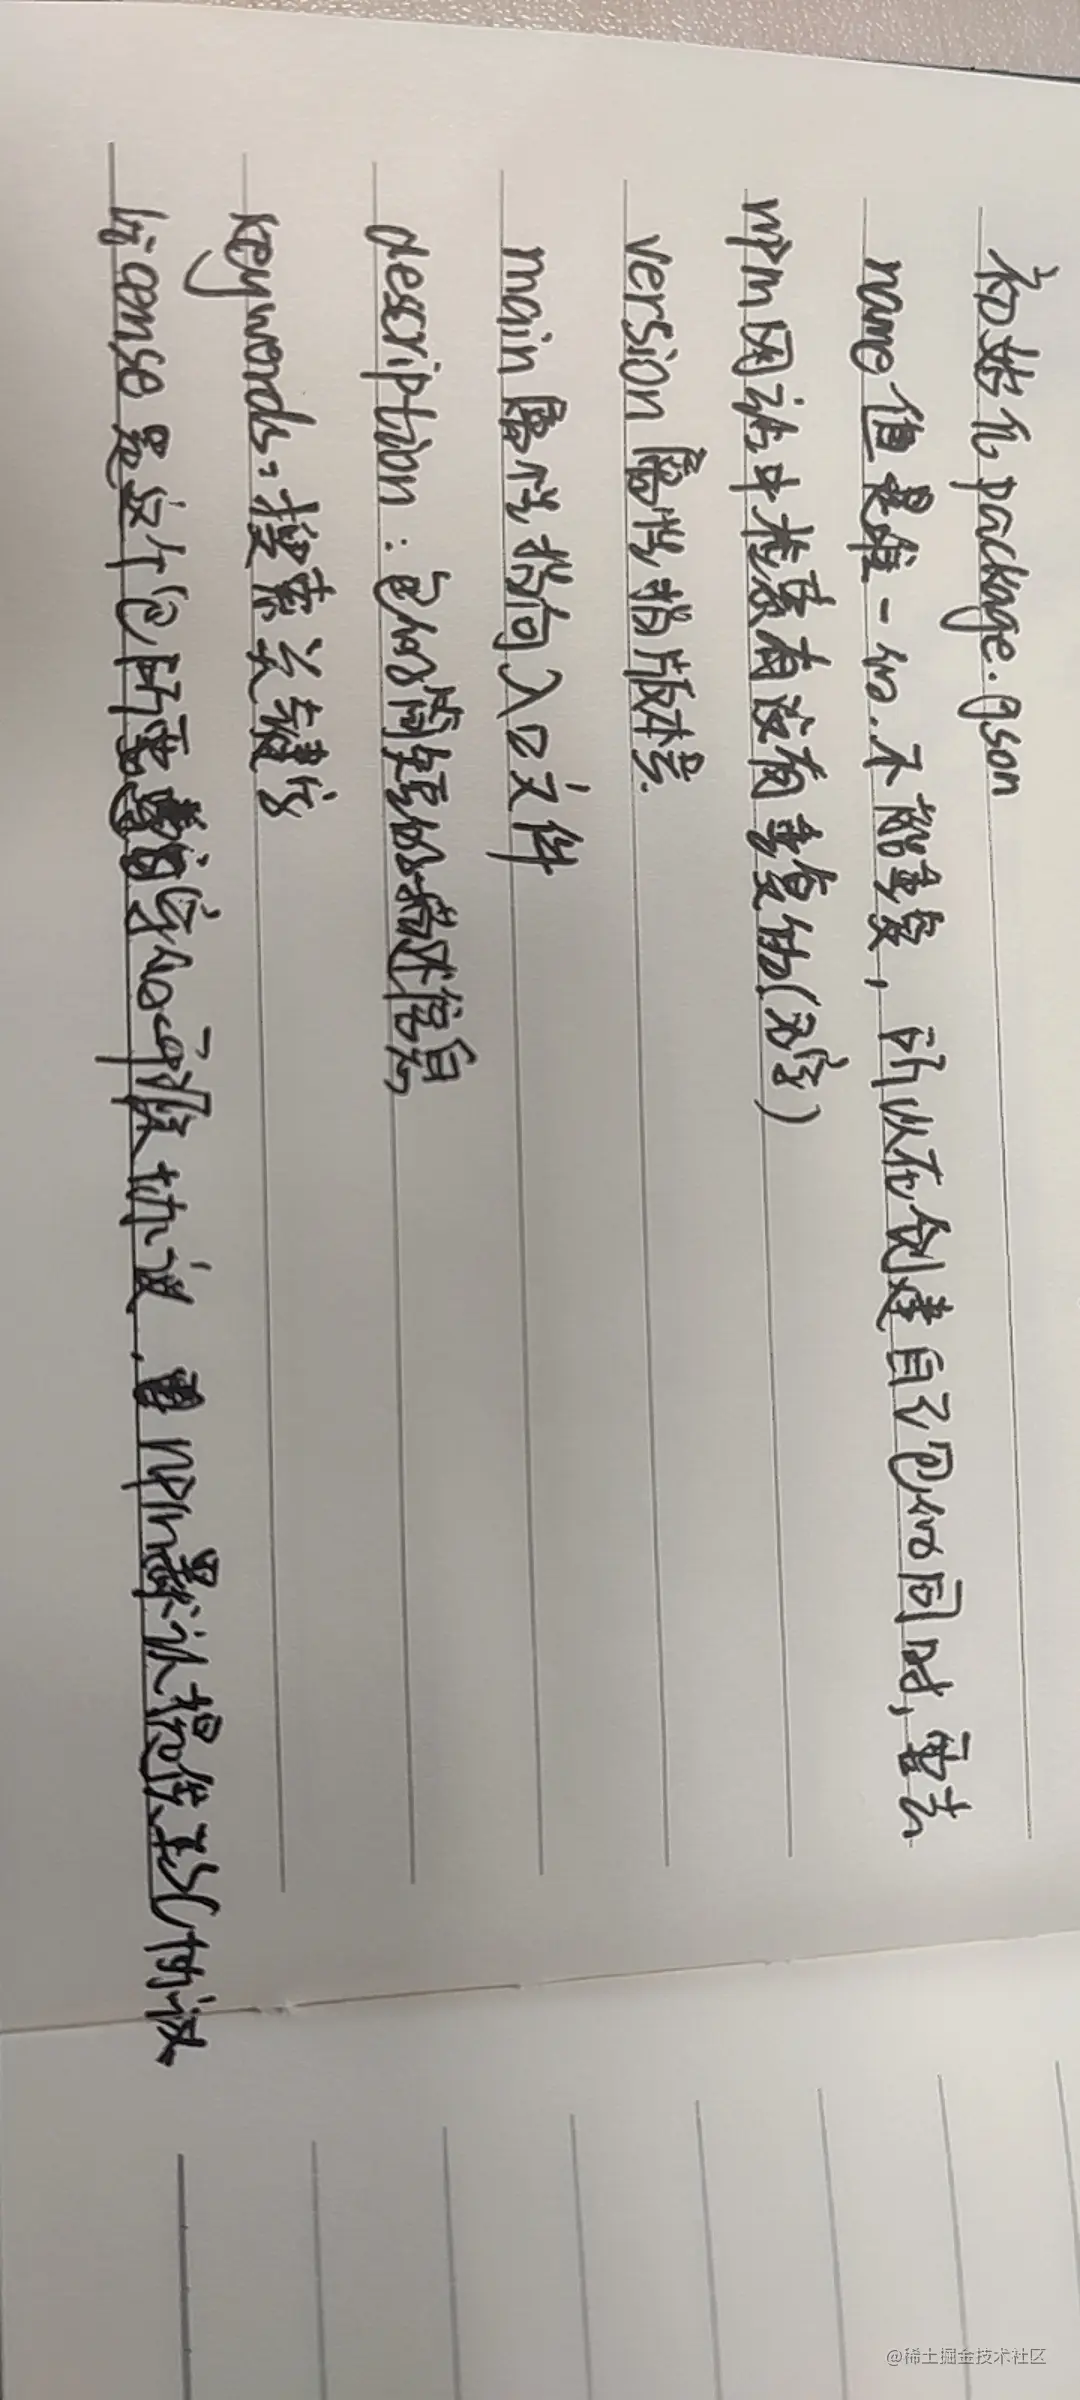 初始化package.gson
name值是唯一的.不能重复，所以在创建自己包的同时，需去
npm网站中检索有没有重复的(名字)
version属性指版本号.
main属性指向入口文件
description：包的简短的描述信息
keywords：搜索关键字
license是这个包所需要遵守的开源协议.npm默认提供ISC协议
@稀土掘金技术社区